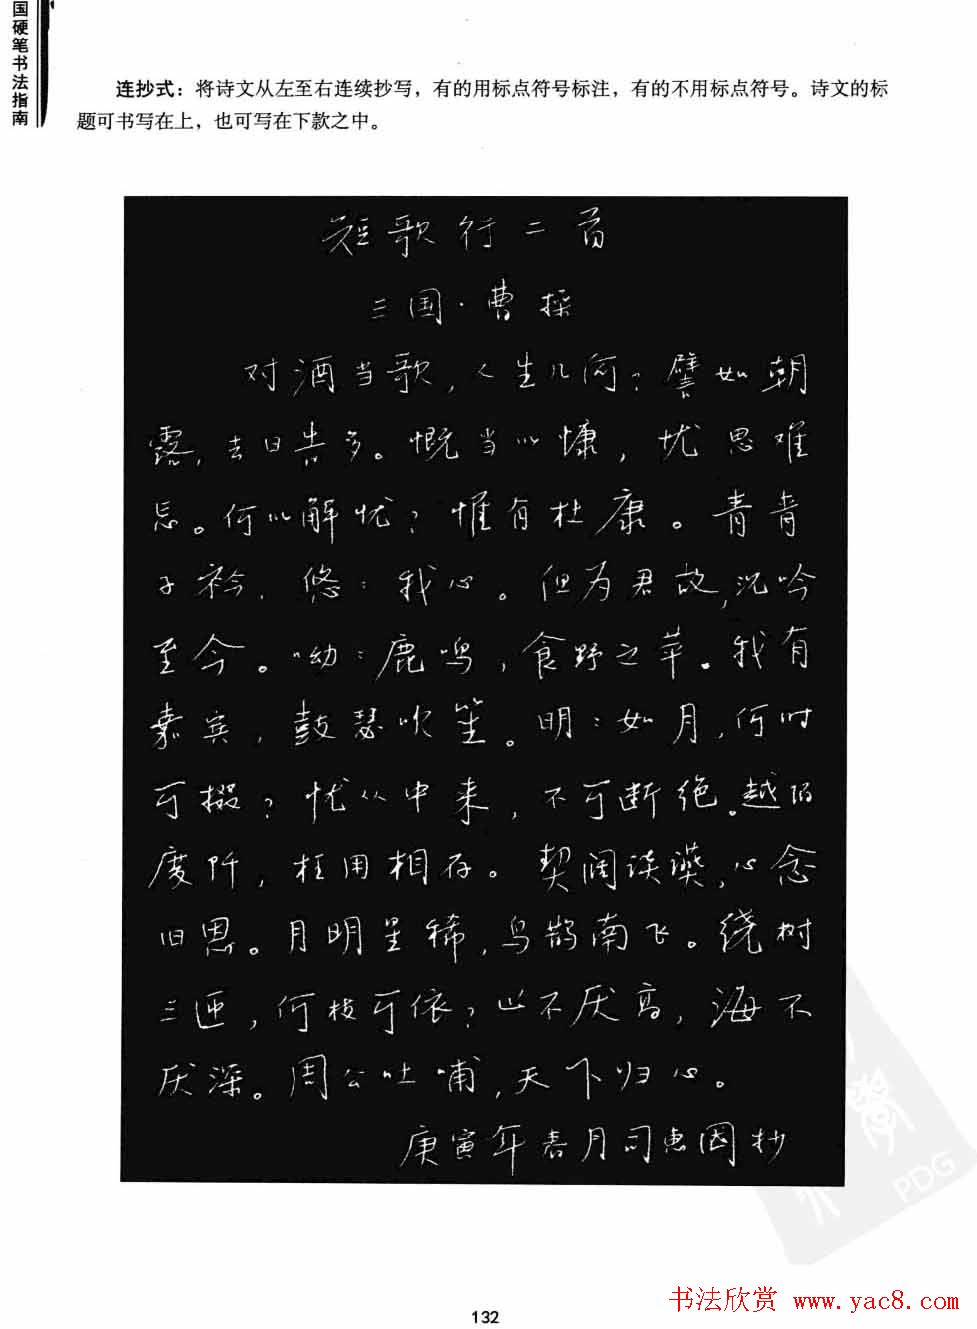 国硬笔书法指南
连抄式：将诗文从左至右连续抄写，有的用标点符号标注，有的不用标点符号。诗文的标
题可书写在上，也可写在下款之中。
短歌行二首
三国·曹操
对酒当歌，人生几何？譬如朝
露，去日苦多。慨当以慷，忧思难
忘。何以解忧？惟有杜康。青青
子衿，悠：我心。但为君故，沉吟
至今。呦：鹿鸣，食野之苹。我有
嘉宾，鼓瑟吹笙。明：如月，何时
可掇？忧从中来，不可断绝。越陌
度阡，枉用相存。契阔谈䜩，心念
旧恩。月明星稀，乌鹊南飞。绕树
三匝，何枝可依？山不厌高，海不
厌深。周公吐哺，天下归心。
庚寅年春月司惠因抄
PDG
132
书法欣赏 www.yac8.com